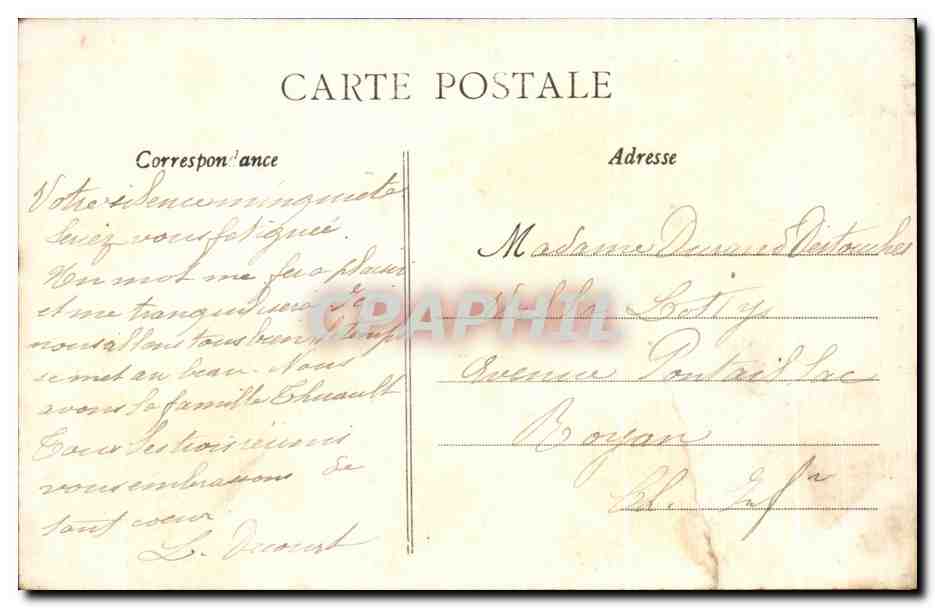 CARTE POSTALE
Correspondance
Adresse
Votre silence m'inquiète
Seriez vous fatiguée.
Un mot me fera plaisir
et me tranquilisera Ici
nous allons tous bien le temps
se met au beau. Nous
avons la famille Thuault
Tous les trois réunis
vous embrassons de
tout coeur
L. Decourt
Madame Durand Destouches
Villa Lottys
Avenue Pontaillac
Royan
Ch. Infre
CPAPHIL